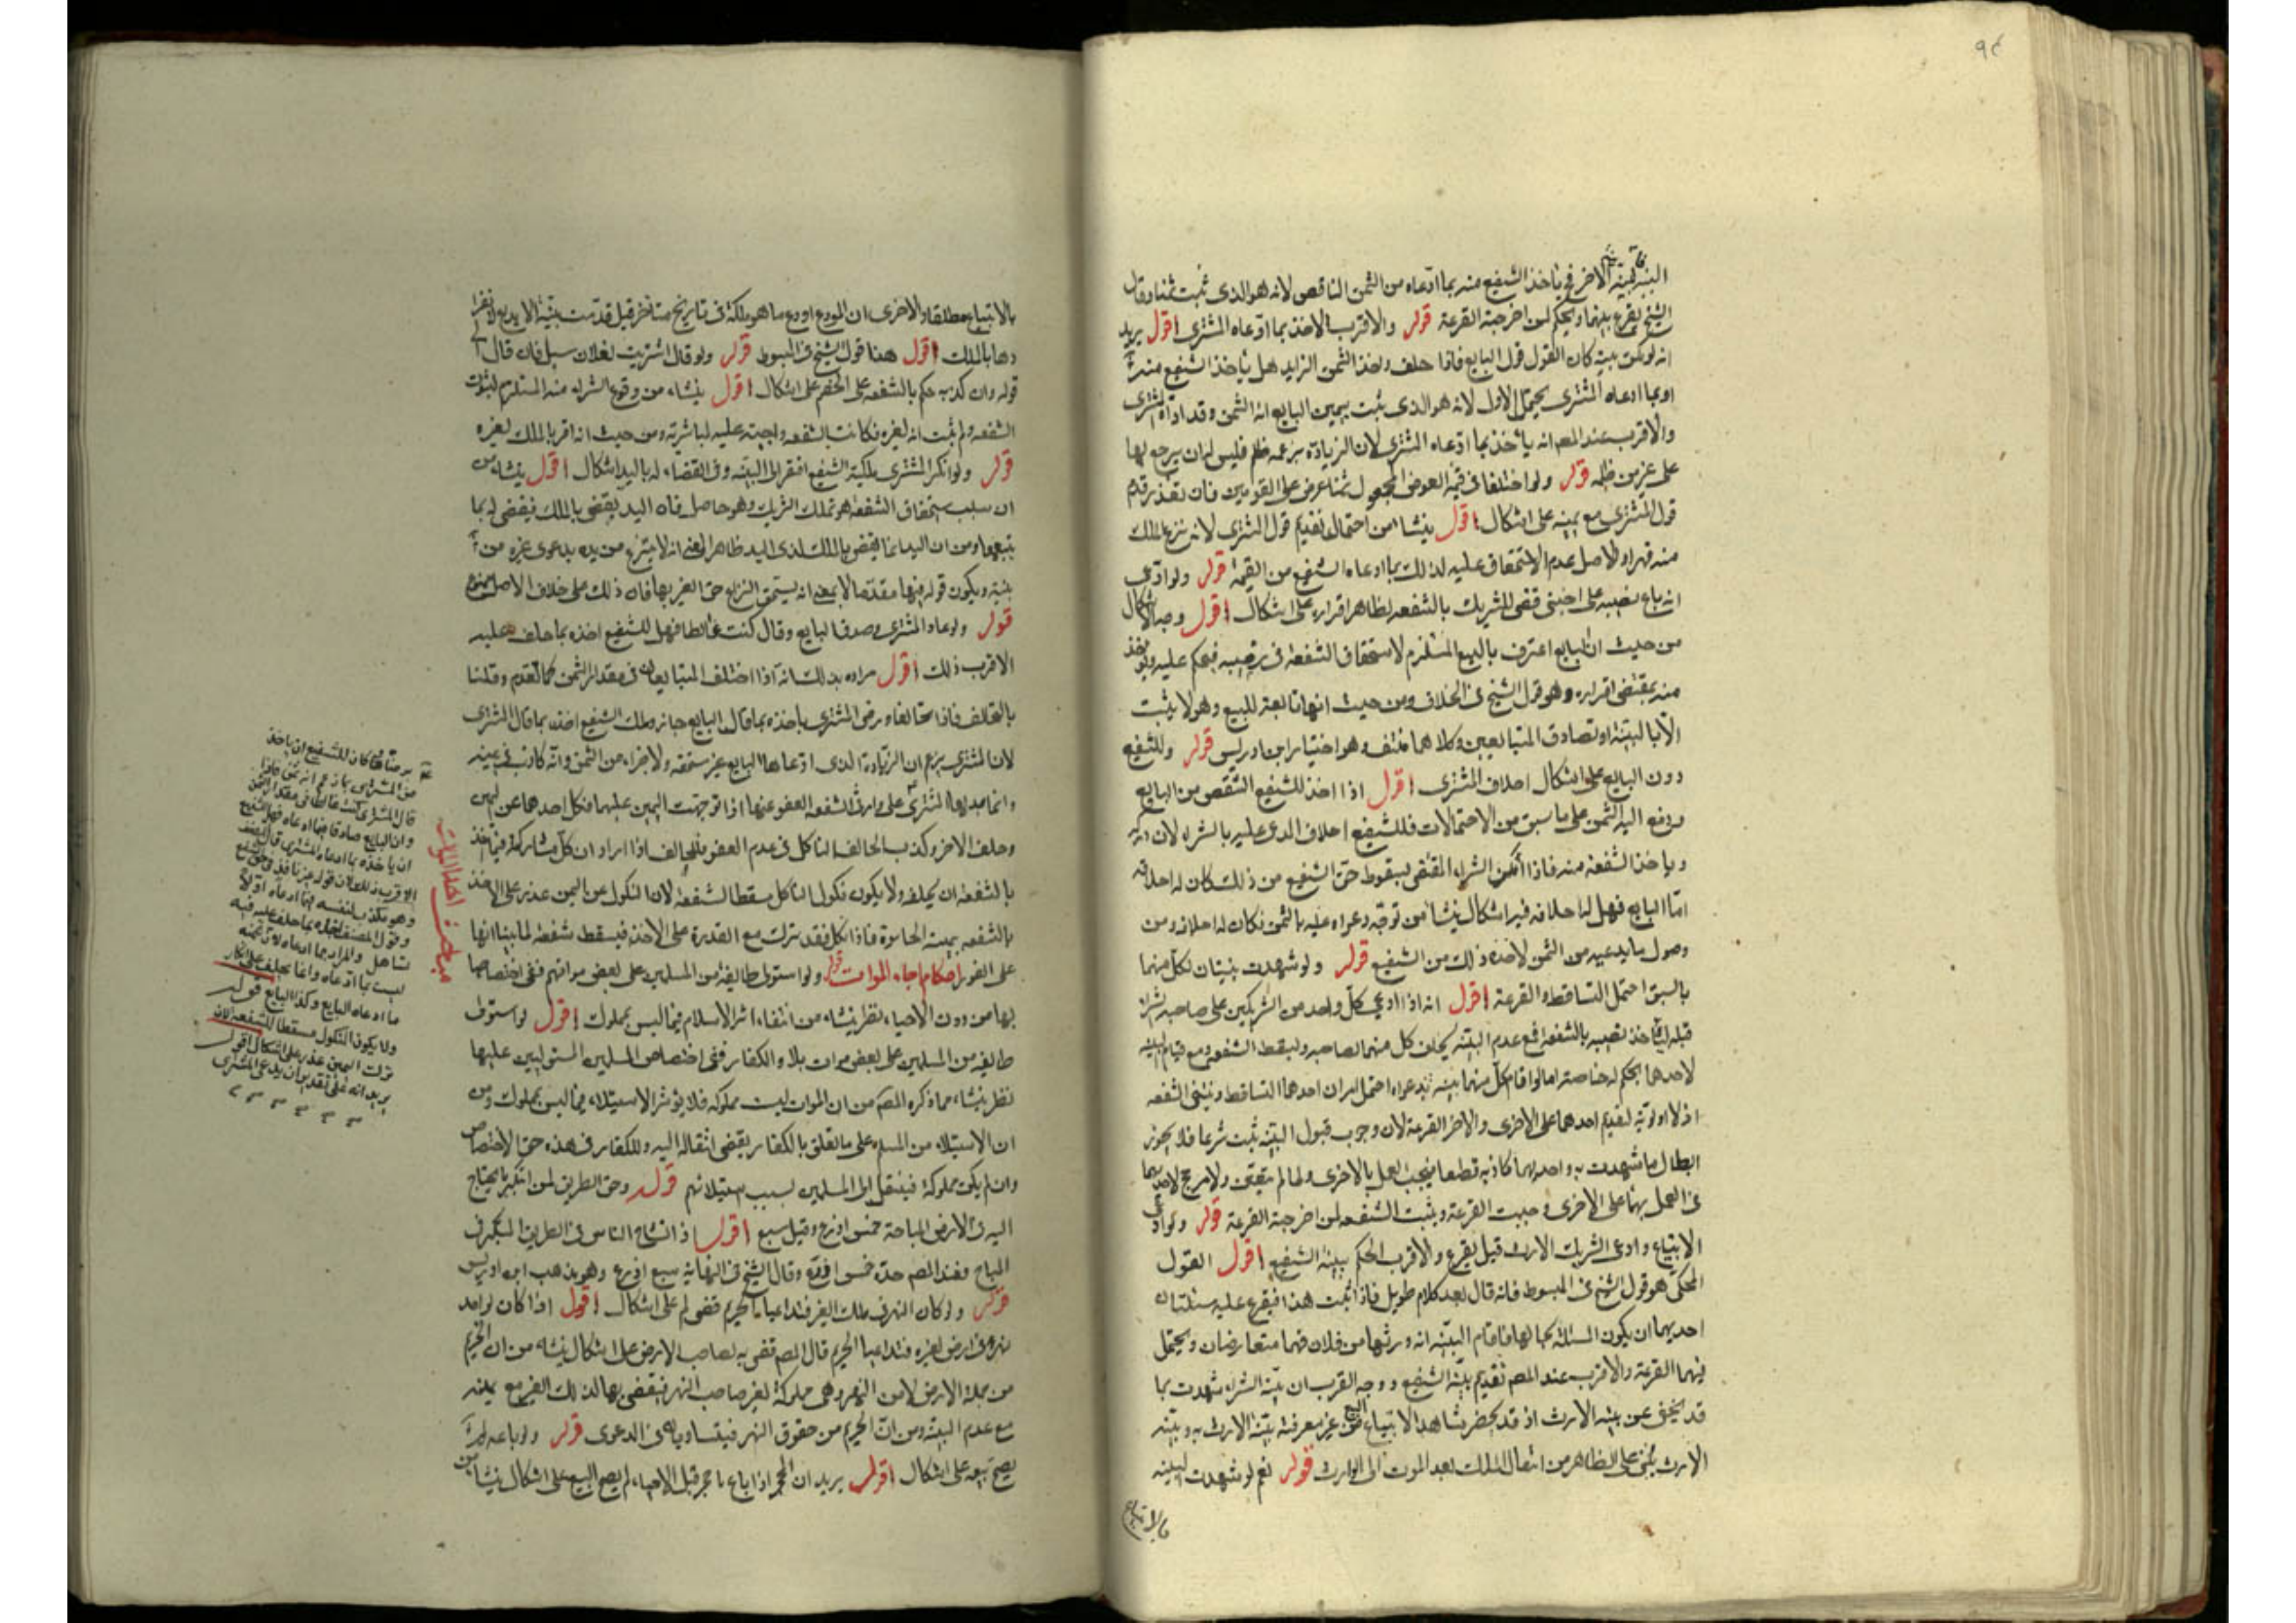 ٩٤
البينة بمينه الاخر في ياخذ الشفيع منه بما ادعاه من الثمن الناقص لانه هو الذي ثبت ثمنا وقال
الشيخ يقرع بينهما ويحكم لمن اخرجته القرعة قوله والاقرب الاخذ بما ادعاه المشترى اقول يريد
انه لو لم يكن بينة كان القول قول البايع فاذا حلف واخذ الثمن الزايد هل ياخذ الشفيع منه
او بما ادعاه المشترى يحتمل الاول لانه هو الذى ثبت بيمين البايع انه الثمن وقد اداه المشترى
والاقرب عند المص انه ياخذ بما ادعاه المشترى لان الزيادة بزعمه ظلم فليس له ان يرجع بها
على غير من ظلمه قوله ولو اختلفا فى قيمة العوض المجعول ثمنا عرض على المقومين فان تعذر قدم
قول المشترى مع يمينه على اشكال اقول ينشا من احتمال تقديم قول المشترى لانه ينزع الملك
منه قهرا والاصل عدم الاستحقاق عليه لذلك بما ادعاه الشفيع من القيمة قوله ولو ادعى
انه باع نصيبه على اجنبى قضى للشريك بالشفعه لظاهر اقراره على اشكال اقول وجه الاشكال
من حيث ان البايع اعترف بالبيع المستلزم لاستحقاق الشفعة فى نصيبه فيحكم عليه ويؤخذ
منه بمقتضى اقراره وهو قول الشيخ فى الخلاف ومن حيث انها تابعة للبيع وهو لا يثبت
الا بالبينة او تصادق المتبايعين وكلاهما منتف وهو اختيار ابن ادريس قوله وللشفيع
دون البايع على اشكال احلاف المشترى اقول اذا اخذ للشفيع الشقص من البايع
ودفع اليه الثمن على ما سبق من الاحتمالات فللشفيع احلاف المدعى عليه بالشراء لان
وياخذ الشفعه منه فاذا انكر الشراء المقتضى لسقوط حق الشفيع من ذلك كان له احلافه
اما البايع فهل له احلافه فيه اشكال ينشا من توجه دعواه عليه بالثمن فكان له احلافه ومن
وصول ما يدعيه من الثمن لاخذه ذلك من الشفيع قوله ولو شهدت بينتان لكل منهما
بالسبق احتمل التساقط والقرعة اقول انه اذا ادعى كل واحد من الشريكين على صاحبه الشراء
قبله لياخذ نصيبه بالشفعه فمع عدم البينة يحلف كل منهما لصاحبه وتسقط الشفعه ومع قيام البينه
لاحدهما يحكم له خاصه اما لو اقام كل منهما بينه بدعواه احتمل امران احدهما التساقط وتنتفى الشفعه
اذ لا اولوية لتقديم احدهما على الاخرى والاخر القرعة لان وجوب قبول البينة ثبت شرعا فلا يجوز
ابطال ما شهدت به واحديهما كاذبه قطعا فيجب العمل بالاخرى ولما لم يتعين ولا مرجح لاحديهما
فى العمل بها على الاخرى وجبت القرعة ويثبت الشفعه لمن اخرجته القرعة قوله ولو ادعى
الابتياع وادعى الشريك الارث قيل يقرع والاقرب الحكم ببينة الشفيع اقول القول
المحكى هو قول الشيخ فى المبسوط فانه قال بعد كلام طويل فاذا ثبت هذا فيقرع عليه مسئلتان
احديهما ان يكون المسئلة بحالها فاقام البينة انه ورثها من فلان فهما متعارضان ويحتمل
فيهما القرعة والاقرب عند المص تقديم بينة الشفيع ووجه القرب ان بينة الشراء شهدت بما
قد يخفى عن بينه الارث اذ قد يحضر شاهدا الابتياع البيع من غير معرفة بينة الارث به وبينة
الارث تبنى على الظاهر من انتقال الملك بعد الموت الى الوارث قوله نعم لو شهدت البينه
بالابتياع
بالابتياع مطلقا والاخرى ان المودع اودع ما هو ملكه فى تاريخ متاخر قيل قدمت بينة الايداع لانفرا
دها بالملك اقول هذا قول الشيخ فى المبسوط قوله ولو قال اشتريت لفلان سيل فان قال
قوله وان كذبه حكم بالشفعه على الخصم على اشكال اقول ينشاء من وقوع الشراء منه المستلزم لثبوت
الشفعه ولم يثبت انه لغيره فكانت الشفعه واجبة عليه لمباشرته ومن حيث انه اقر بالملك لغيره
قوله ولو انكر المشترى ملكية الشفيع افتقر الى البينه وفى القضاء له باليد اشكال اقول ينشاء من
ان سبب استحقاق الشفعه هو تملك الشريك وهو حاصل فان اليد يقضى بالملك فيقضى له بما
يتبعها ومن ان اليد انما يقضى بالملك لذى اليد ظاهرا بمعنى انه لا ينتزع من يده بدعوى غيره من
بينة ويكون قوله فيها مقدما لا بمعنى انه يستحق انتزاع حق الغير بها فان ذلك على خلاف الاصل
قوله ولو عاد المشترى وصدق البايع وقال كنت غالطا فهل للشفيع اخذه بما حلف عليه
الاقرب ذلك اقول مراده بذلك انه اذا اختلف المتبايعان فى مقدار الثمن كما تقدم وقلنا
بالتحالف فاذا تحالفا ورضى المشترى باخذه بما قال البايع جاز وملك الشفيع اخذه بما قال المشترى
لان المشترى يزعم ان الزيادة الذى ادعاها البايع غير مستحقه ولاجزاء من الثمن وانه كاذب فى يمينه
وحلف الاخر وكذب الحالف الناكل فى عدم العفو فللحالف اذا اراد ان كل مشاركه فياخذ
بالشفعه ان يحلفه ولا يكون نكول الناكل مسقطا للشفعه لان النكول عن اليمين عذر على الاخذ
بالشفعه فاذا نكل فقد ترك مع القدرة على الاخذ فيسقط شفعته لما بينا انها
على الفور احكام احياء الموات قوله ولو استولى طايفه من المسلمين على بعض مواتهم ففى اختصاصها
بها من دون الاحياء نظر ينشاء من انتفاء اثر الاسلام فيما ليس بمملوك اقول لو استولت
طايفه من المسلمين على بعض موات بلاد الكفار ففى اختصاص المسلمين المستولين عليها
نظر ينشاء مما ذكره المص من ان الموات ليست مملوكه فلا يؤثر الاستيلاء فيما ليس بمملوك ومن
ان الاستيلاء من المسلم على ما تعلق بالكفار يقتضى انتقاله اليه وللكفار فى هذه حق الاختصاص
وان لم يكن مملوكة فينتقل الى المسلمين بسبب استيلائهم قوله وحق الطريق لمن ابتكر ما يحتاج
اليه فى الارض المباحة خمس اذرع وقيل سبع اقول اذا تشاح الناس فى الطريق المبتكر فى
المباح فعند المص حده خمس اذرع وقال الشيخ فى النهاية سبع اذرع وهو مذهب ابن ادريس
قوله ولو كان النهر فى ملك الغير فتداعيا الحريم قضى له على اشكال اقول اذا كان لواحد
نهر فى ارض لغيره فتداعيا الحريم قال المص قضى به لصاحب الارض على اشكال ينشاء من ان الحريم
من جملة الارض لا من النهر وهى مملوكة لغير صاحب النهر فيقضى بها لذلك الغير مع يمينه
مع عدم البينة ومن ان الحريم من حقوق النهر فيتساويان فى الدعوى قوله ولو باعه لم
يصح بيعه على اشكال اقول يريد ان المحجر اذا باع ما حجر قبل الاحياء لم يصح البيع على اشكال ينشاء من
مباحث احياء الموات
كان للشفيع ان ياخذ
من المشترى بما زعم انه ثمن فاذا
قال المشترى كنت غالطا فى مقدار الثمن
وان البايع صادق فيما ادعاه فهل للشفيع
ان ياخذه بما ادعاه المشترى قال المصنف
الاقرب ذلك لان قوله غير نافذ فى حق الشفيع
وهو مكذب لنفسه بما ادعاه اولا
وقول المصنف اخذه بما حلف عليه فيه
تساهل والمراد بما ادعاه لان يمينه
ليست بما ادعاه وانما يحلف على انكار
ما ادعاه البايع وكذا البايع قوله
ولا يكون النكول مسقطا للشفعه لان
ترك اليمين عذر على اشكال اقول
يريد انه على تقدير ان يدعى المشترى